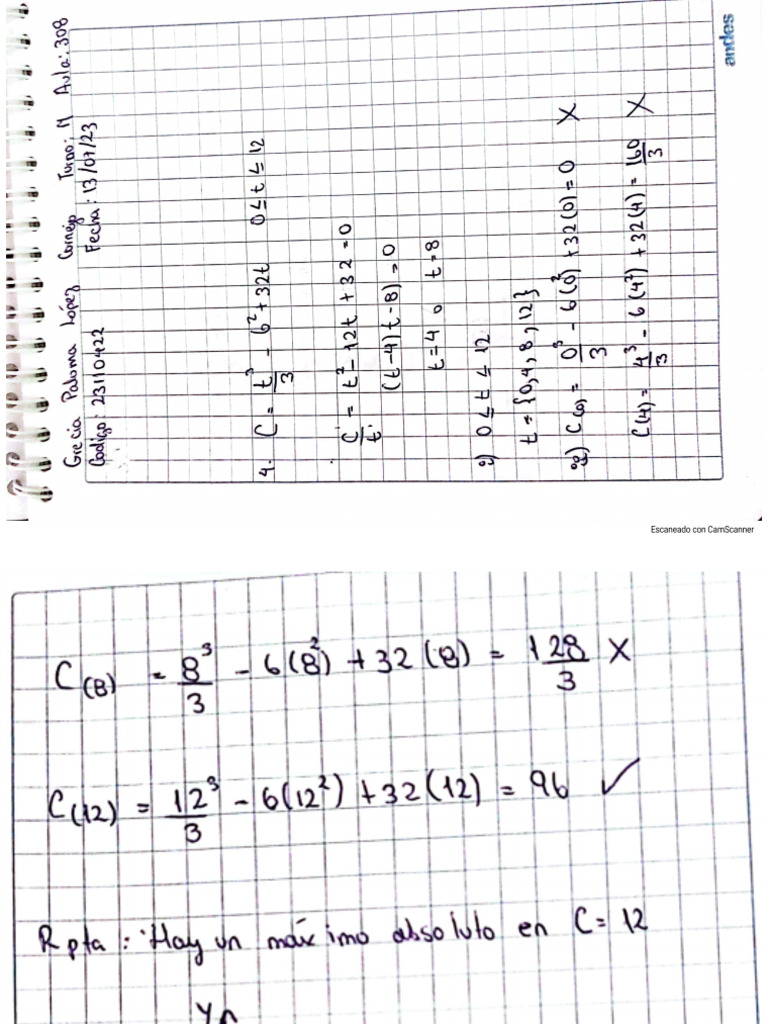 Grecia Paloma López Cornejo Turno: M Aula: 308
Código: 23110422 Fecha: 13/07/23
4. C = t³/3 - 6² + 32t 0 ≤ t ≤ 12
C'/t = t² - 12t + 32 = 0
(t-4)(t-8) = 0
t=4 o t=8
1) 0 ≤ t ≤ 12
t = {0,4,8,12}
2) C(0) = 0³/3 - 6(0²) + 32(0) = 0 X
C(4) = 4³/3 - 6(4²) + 32(4) = 160/3 X
andes
Escaneado con CamScanner
C(8) = 8³/3 - 6(8²) + 32(8) = 128/3 X
C(12) = 12³/3 - 6(12²) + 32(12) = 96 ✓
Rpta: Hay un máximo absoluto en C = 12